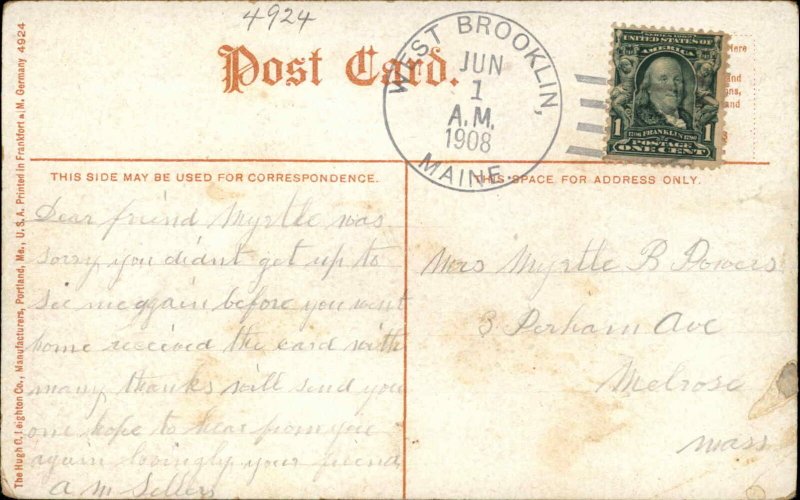 4924
Post Card.
WEST BROOKLIN,
JUN
1
A.M.
1908
MAINE.
SERIES 1902
UNITED STATES OF
AMERICA
1706 FRANKLIN 1790
1 POSTAGE 1
ONE CENT
Here
and
and
THIS SIDE MAY BE USED FOR CORRESPONDENCE.
THIS SPACE FOR ADDRESS ONLY.
The Hugh C. Leighton Co., Manufacturers, Portland, Me., U.S.A. Printed in Frankfort a. M. Germany 4924
Dear friend Myrtle was
sorry you didnt get up to
see me again before you went
home received the card with
many thanks will send you
one hope to hear from you
again lovingly your friend
A M Sellers
Mrs Myrtle B Powers
3 Perham Ave
Melrose
Mass